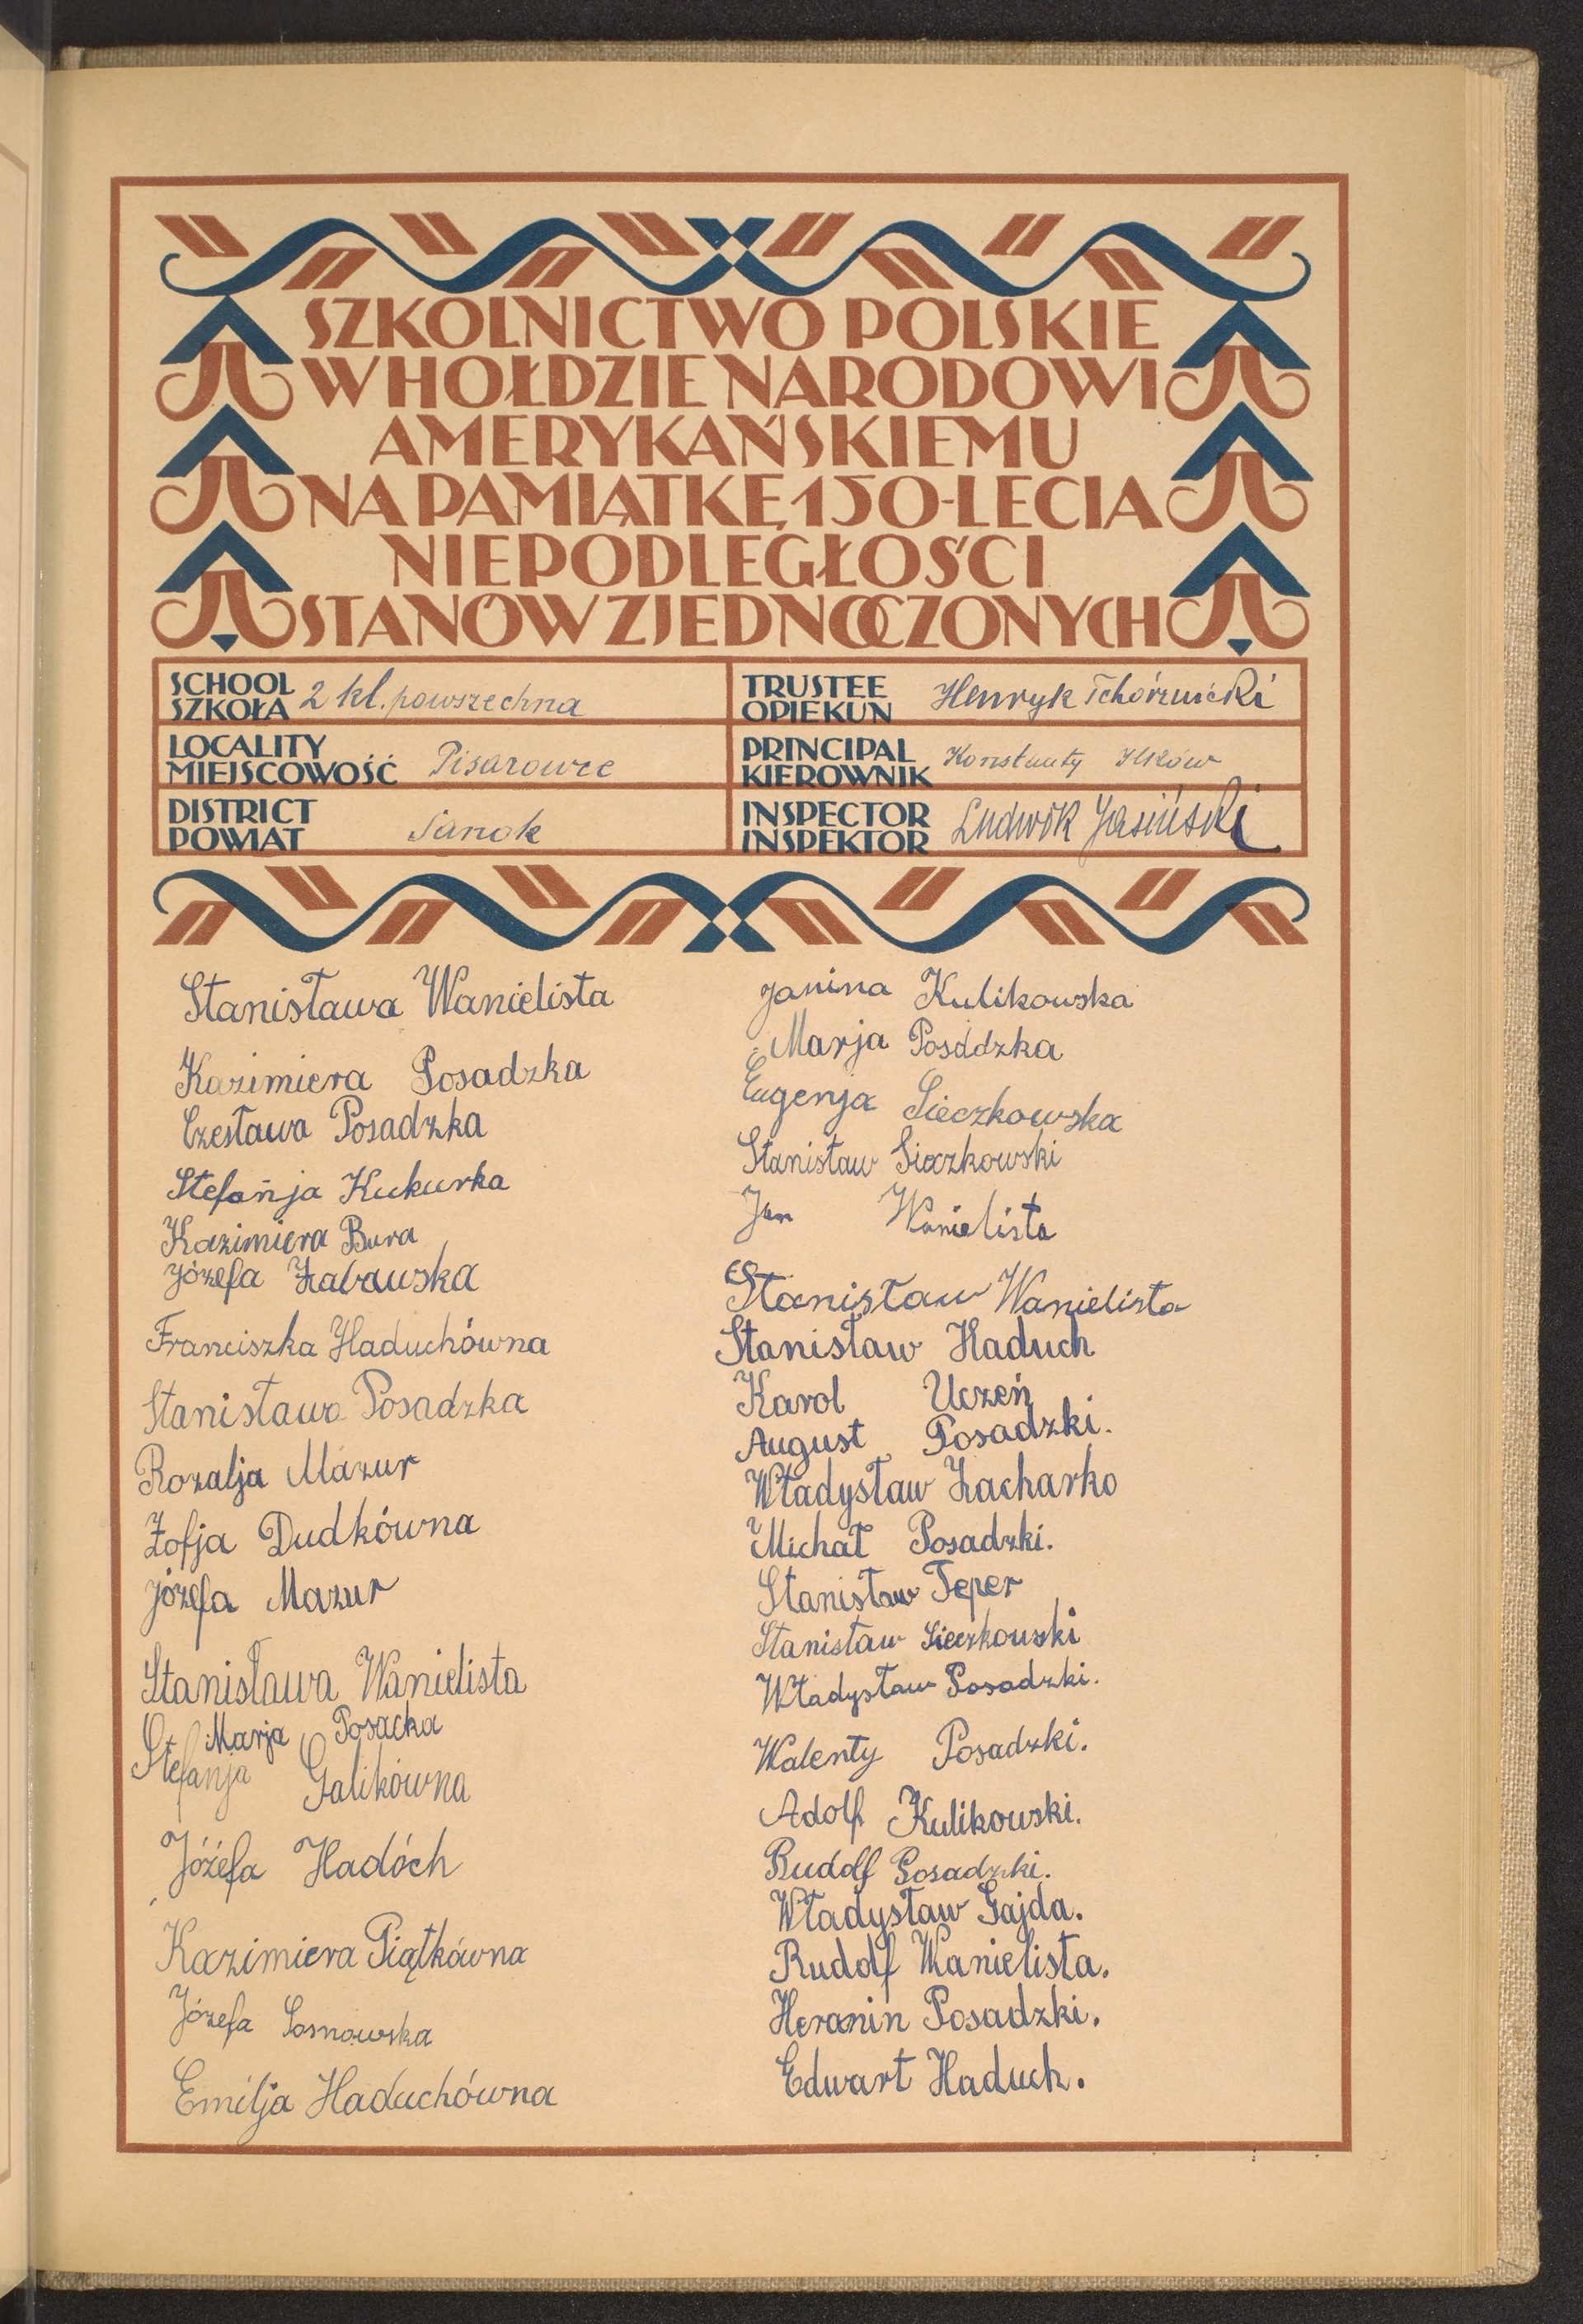 SZKOLNICTWO POLSKIE
W HOŁDZIE NARODOWI
AMERYKAŃSKIEMU
NA PAMIĄTKĘ 150-LECIA
NIEPODLEGŁOŚCI
STANÓW ZJEDNOCZONYCH
SCHOOL
SZKOŁA 2 kl. powszechna
LOCALITY
MIEJSCOWOŚĆ Pisarowce
DISTRICT
POWIAT Sanok
TRUSTEE
OPIEKUN Henryk Tchórznicki
PRINCIPAL
KIEROWNIK Konstanty Ilków
INSPECTOR
INSPEKTOR Ludwik Jasiński
Stanisława Wanielista
Kazimiera Posadzka
Czesława Posadzka
Stefańja Kukurka
Kazimiera Bura
Józefa Żabawska
Franciszka Haduchówna
Stanisława Posadzka
Rozalja Mazur
Zofja Dudkówna
Józefa Mazur
Stanisława Wanielista
Marja Posacka
Stefanja Galikówna
Józéfa Hadóch
Kazimiera Piątkówna
Józefa Sosnowska
Emilja Haduchówna
Janina Kulikowska
Marja Posadzka
Eugenja Sieczkowska
Stanisław Sieczkowski
Jan Wanielista
Stanisław Wanielista
Stanisław Haduch
Karol Uczeń
August Posadzki.
Władysław Zacharko
Michał Posadzki.
Stanisław Teper
Stanisław Sieczkowski
Władysław Posadzki.
Walenty Posadzki.
Adolf Kulikowski.
Rudolf Posadzki.
Władysław Gajda.
Rudolf Wanielista.
Heranin Posadzki.
Edwart Haduch.